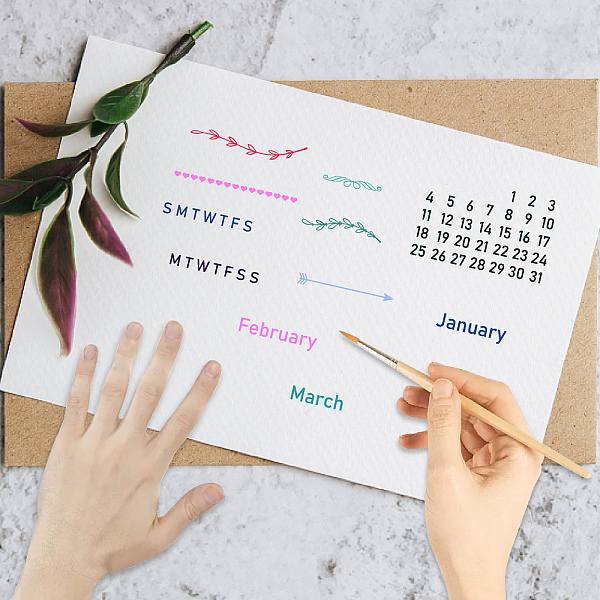 SMTWTFS
MTWTFSS
February
March
1 2 3
4 5 6 7 8 9 10
11 12 13 14 15 16 17
18 19 20 21 22 23 24
25 26 27 28 29 30 31
January